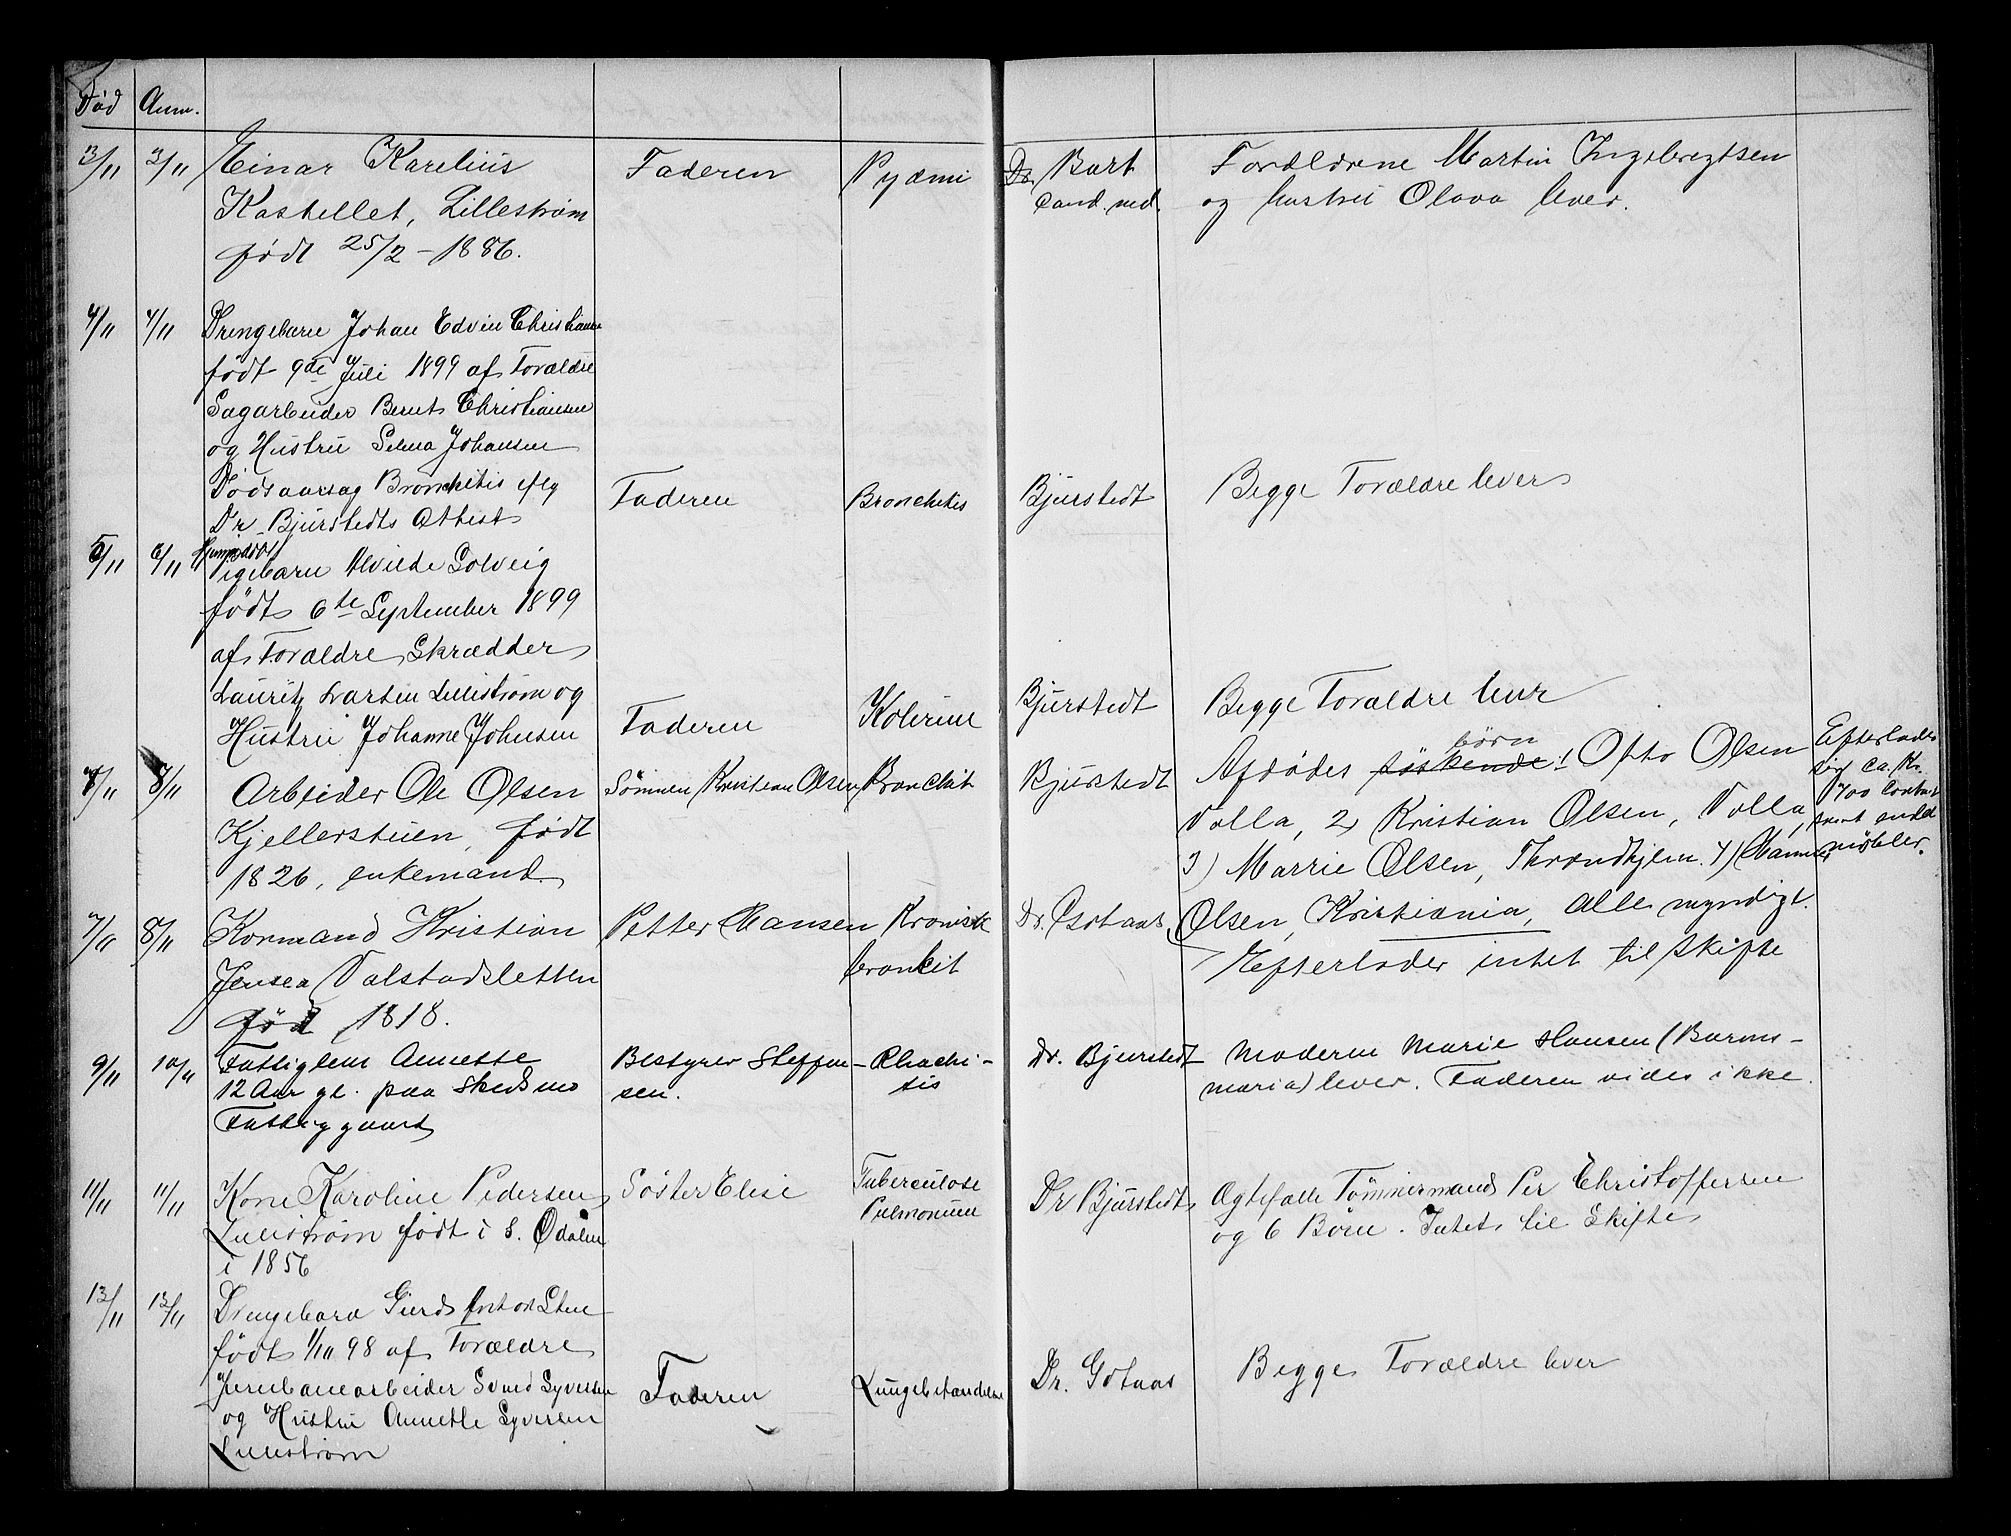 Død Anm.
3/11 3/11 Einar Karelius Faderen Pyæmi Dr. Bart Forældrene Martin Ingebregtsen
Kastellet, Lillestrøm cand. med. og hustru Olava lever.
født 25/2 - 1886.
4/11 4/11 Drengebarn Johan Edvin Christiansen
født 9de Juli 1899 af Forældre
Sagarbeider Bernt Christiansen
og Hustru Selma Johansen
Dødsaarsag Bronchitis iflg Faderen Bronchitis Bjurstedt Begge Forældre lever
Dr. Bjurstedts Attest
5/11 6/11 Pigebarn Alvilde Solveig
født 6te September 1899
af Forældre Skrædder
Lauritz Larsen Lillestrøm og
Hustru Johanne Johnsen Faderen Kolerine Bjurstedt Begge Forældre lever
8/11 8/11 Arbeider Ole Olsen Sønnen Kristian Olsen Bronchit Bjurstedt Afdødes søskende børn ! Otto Olsen Efterlader
Kjellerstuen, født Volla, 2) Kristian Olsen, Volla, sig ca. Kr.
1826, enkemand. 3) Marrie Olsen, Throndhjem. 4) Hanna 700 contant
Olsen, Kristiania, Alle myndige. samt endel
møbler.
7/11 8/11 Kormand Kristian Petter Hansen Kronisk Dr. Gotaas Efterlader intet til skifte
Jensen Valstadsletten bronkit
død 1818.
9/11 10/11 Fattiglem Annette Bestyrer Steffen- Rhachi- Dr. Bjurstedt Moderen Marie Hansen (Barms-
12 Aar gl. paa Skedsmo sen. tis maria) lever. Faderen vides ikke.
Fattiggaard
11/11 11/11 Kone Karoline Pedersen Søster Elise Tuberculose Dr Bjurstedt Ægtefælle Tømmermand Per Christoffersen
Lillestrøm født i S. Odalen Pulmonum og 6 Børn. Intet til Skifte
i 1856
13/11 13/11 Drengebarn
født 1/10 98 af Forældre
Jernbanearbeider Syversen Faderen Lungebetændelse Dr. Gotaas Begge Forældre lever
og Hustru Annette Syversen
Lillestrøm